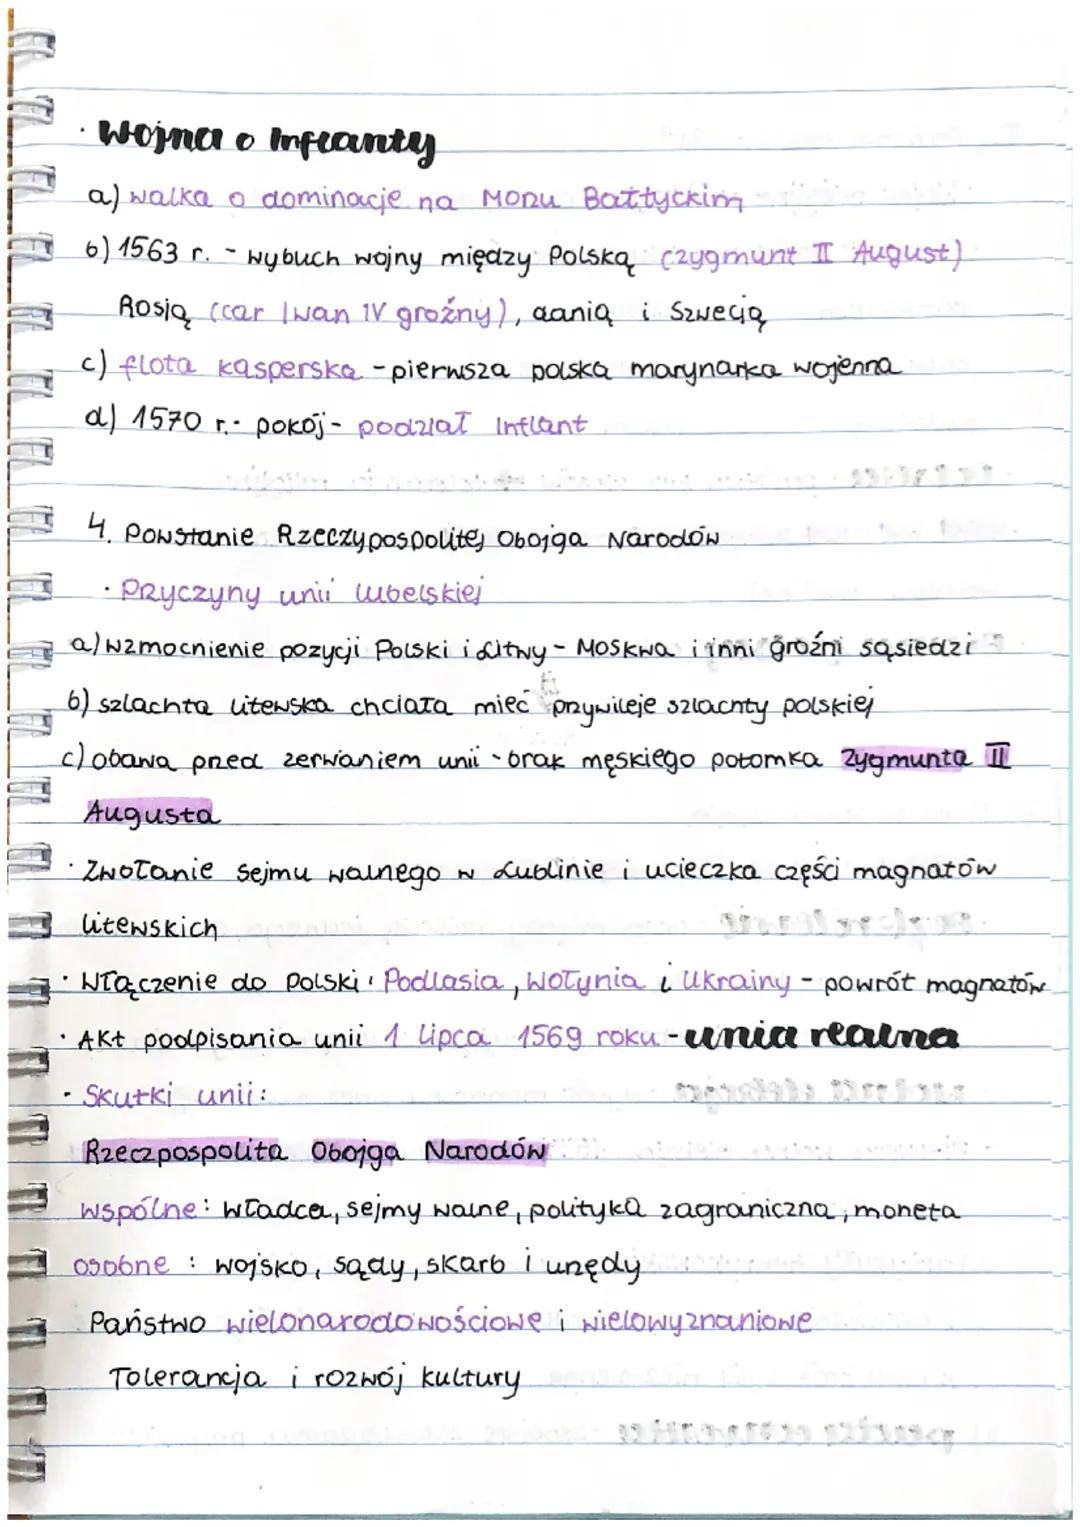 · Wojna o Inflanty
a) walka o dominację na Morzu Bałtyckim
b) 1563 r. - wybuch wojny między Polską (Zygmunt II August)
Rosją (car Iwan IV groźny), danią i Szwecją
c) flota kasperska - pierwsza polska marynarka wojenna
d) 1570 r. - pokój - podział Inflant
4. Powstanie Rzeczypospolitej Obojga Narodów
· Przyczyny unii lubelskiej
a) wzmocnienie pozycji Polski i Litwy - Moskwa i inni groźni sąsiedzi
b) szlachta litewska chciała mieć przywileje szlachty polskiej
c) obawa przed zerwaniem unii - brak męskiego potomka Zygmunta II
Augusta
· Zwołanie sejmu walnego w Lublinie i ucieczka części magnatów
litewskich
· Włączenie do Polski: Podlasia, Wołynia i Ukrainy - powrót magnatów
· Akt podpisania unii 1 lipca 1569 roku - unia realna
· Skutki unii:
Rzeczpospolita Obojga Narodów
wspólne: władca, sejmy walne, polityka zagraniczna, moneta
osobne : wojsko, sądy, skarb i urzędy
Państwo wielonarodowościowe i wielowyznaniowe
Tolerancja i rozwój kultury